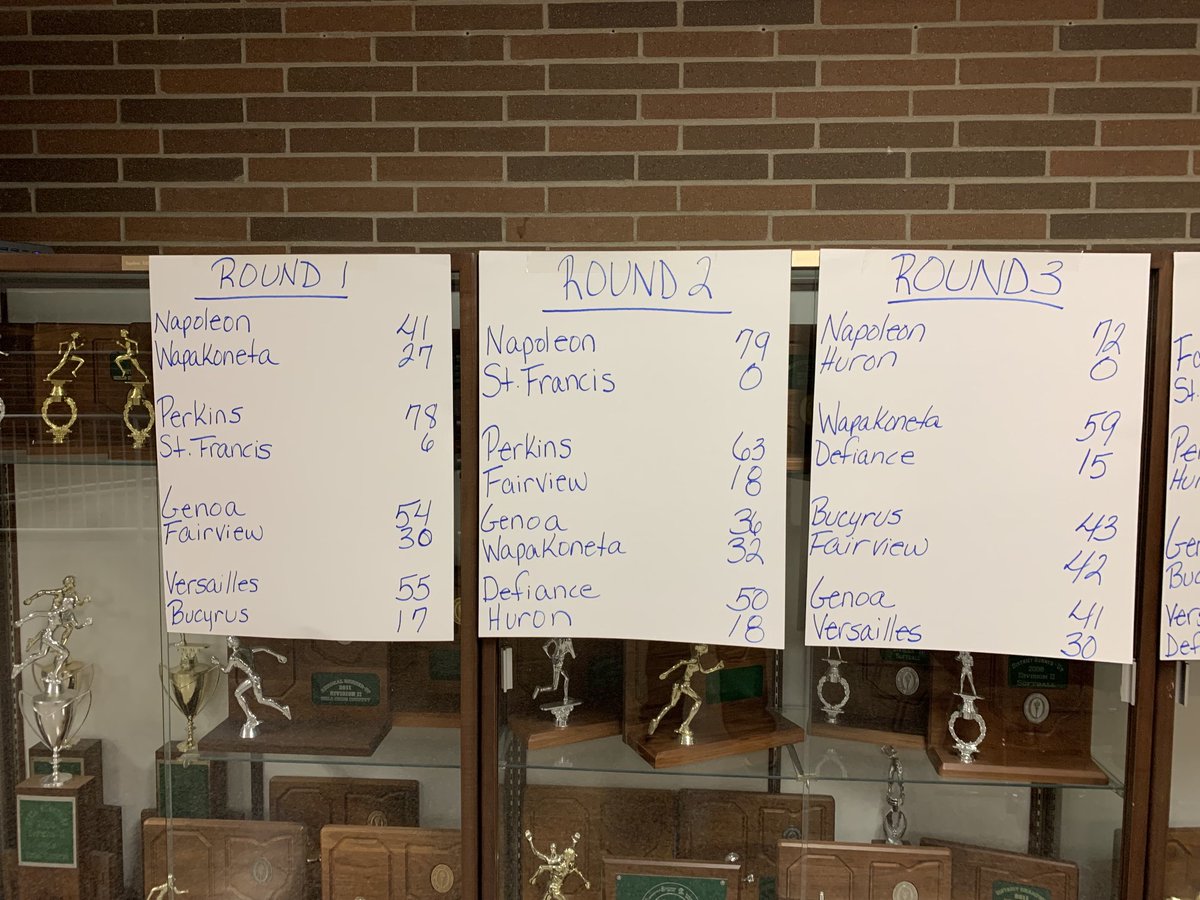 ROUND 1
Napoleon 41
Wapakoneta 27
Perkins 78
St. Francis 6
Genoa 54
Fairview 30
Versailles 55
Bucyrus 17
ROUND 2
Napoleon 79
St. Francis 0
Perkins 63
Fairview 18
Genoa 36
Wapakoneta 32
Defiance 50
Huron 18
ROUND 3
Napoleon 72
Huron 0
Wapakoneta 59
Defiance 15
Bucyrus 43
Fairview 42
Genoa 41
Versailles 30
St.
2011
DIVISION II